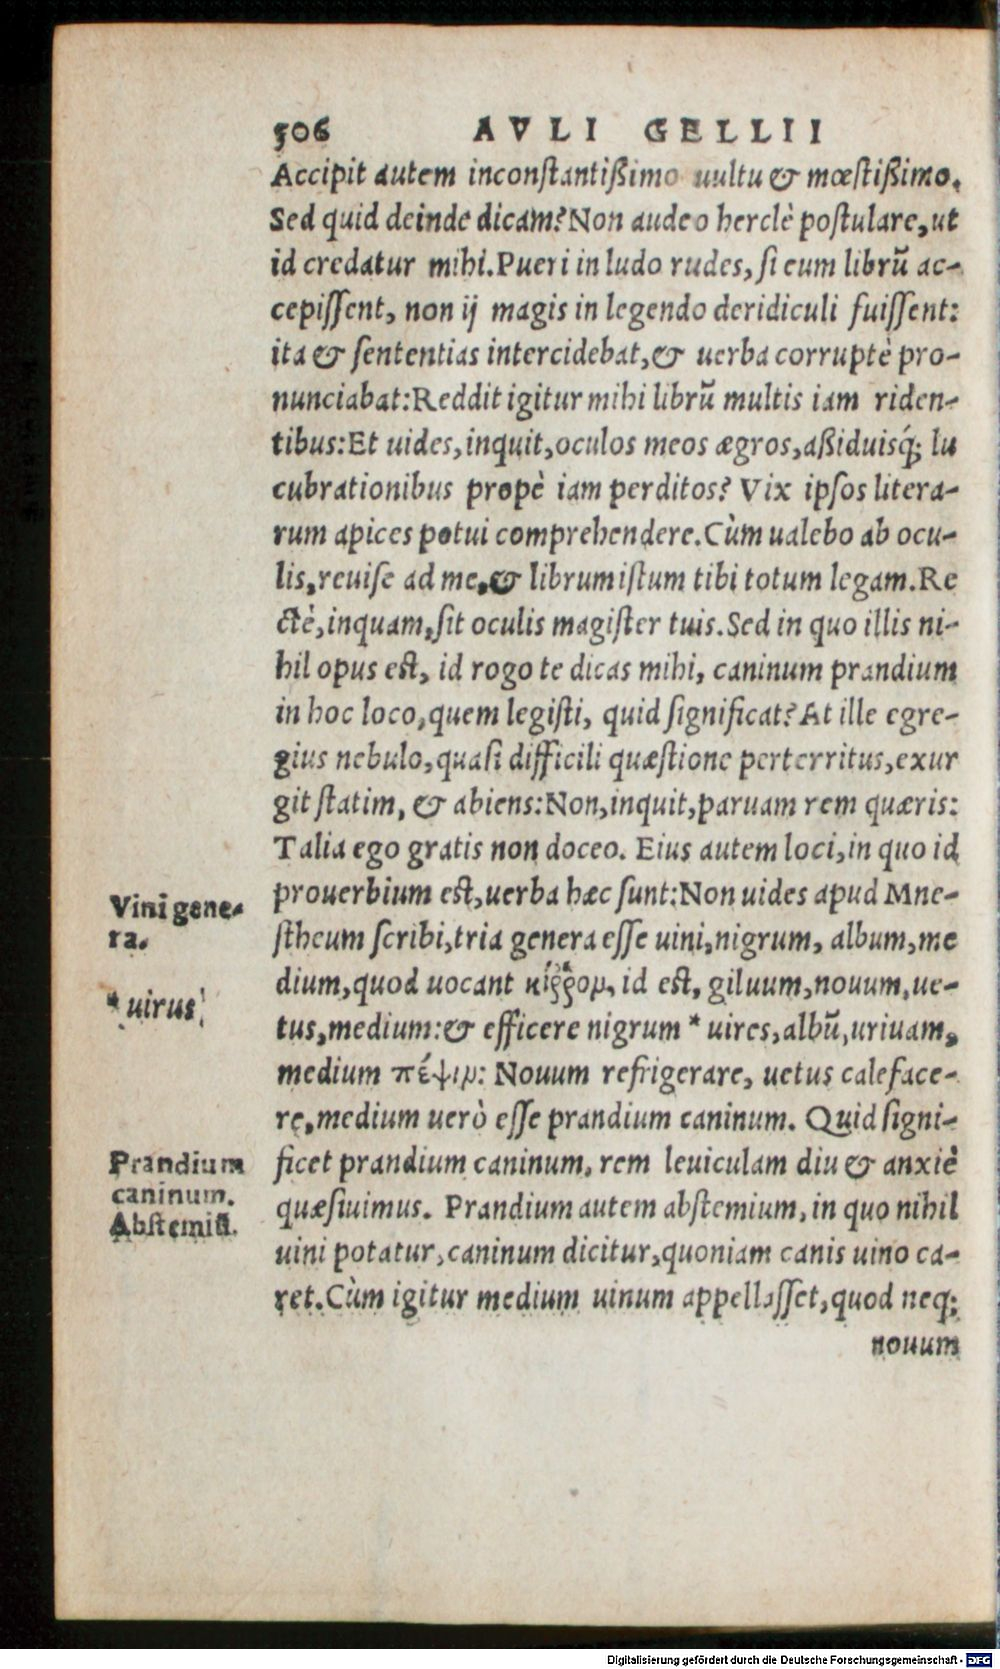 506 AVLI GELLII
Accipit autem inconstantißimo uultu & mœstißimo.
Sed quid deinde dicam? Non audeo herclè postulare, ut
id credatur mihi. Pueri in ludo rudes, si eum librũ ac-
cepissent, non ij magis in legendo deridiculi fuissent:
ita & sententias intercidebat, & uerba corruptè pro-
nunciabat: Reddit igitur mihi librũ multis iam riden-
tibus: Et uides, inquit, oculos meos ægros, aßiduisq́; lu
cubrationibus propè iam perditos? Vix ipsos litera-
rum apices potui comprehendere. Cùm ualebo ab ocu-
lis, reuise ad me, & librum istum tibi totum legam. Re
ctè, inquam, sit oculis magister tuis. Sed in quo illis ni-
hil opus est, id rogo te dicas mihi, caninum prandium
in hoc loco, quem legisti, quid significat? At ille egre-
gius nebulo, quasi difficili quæstione perterritus, exur
git statim, & abiens: Non, inquit, paruam rem quæris:
Talia ego gratis non doceo. Eius autem loci, in quo id
prouerbium est, uerba hæc sunt: Non uides apud Mne-
stheum scribi, tria genera esse uini, nigrum, album, me
dium, quod uocant κιῤῥὸν, id est, giluum, nouum, ue-
tus, medium: & efficere nigrum * uires, albũ, uriuam,
medium πέψιν: Nouum refrigerare, uetus caleface-
re, medium uerò esse prandium caninum. Quid signi-
ficet prandium caninum, rem leuiculam diu & anxiè
quæsiuimus. Prandium autem abstemium, in quo nihil
uini potatur, caninum dicitur, quoniam canis uino ca-
ret. Cùm igitur medium uinum appellasset, quod neq;
nouum
Vini gene-
ra.
* uirus
Prandium
caninum.
Abstemiũ.
Digitalisierung gefördert durch die Deutsche Forschungsgemeinschaft - DFG